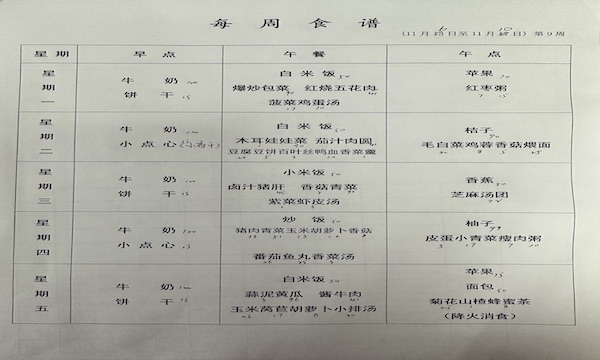 每周食谱
(11月6日至11月10日) 第9周
星期 早点 午餐 午点
星期一 牛奶 白米饭 50 苹果
饼干 15 爆炒包菜 红烧五花肉 红枣粥
菠菜鸡蛋汤
星期二 牛奶 白米饭 50 桔子
小点心 木耳娃娃菜 茄汁肉圆 毛白菜鸡蓉香菇煨面
豆腐豆饼百叶丝鸭血香菜羹
星期三 牛奶 小米饭 50 香蕉
饼干 15 卤汁猪肝 香菇青菜 芝麻汤团
紫菜虾皮汤
星期四 牛奶 炒饭 50 柚子
小点心 15 猪肉青菜玉米胡萝卜香菇 皮蛋小青菜瘦肉粥
番茄鱼丸青菜汤
星期五 牛奶 白米饭 50 苹果
饼干 15 蒜泥黄瓜 酱牛肉 面包
玉米莴苣胡萝卜小排汤 菊花山楂蜂蜜茶
(降火消食)